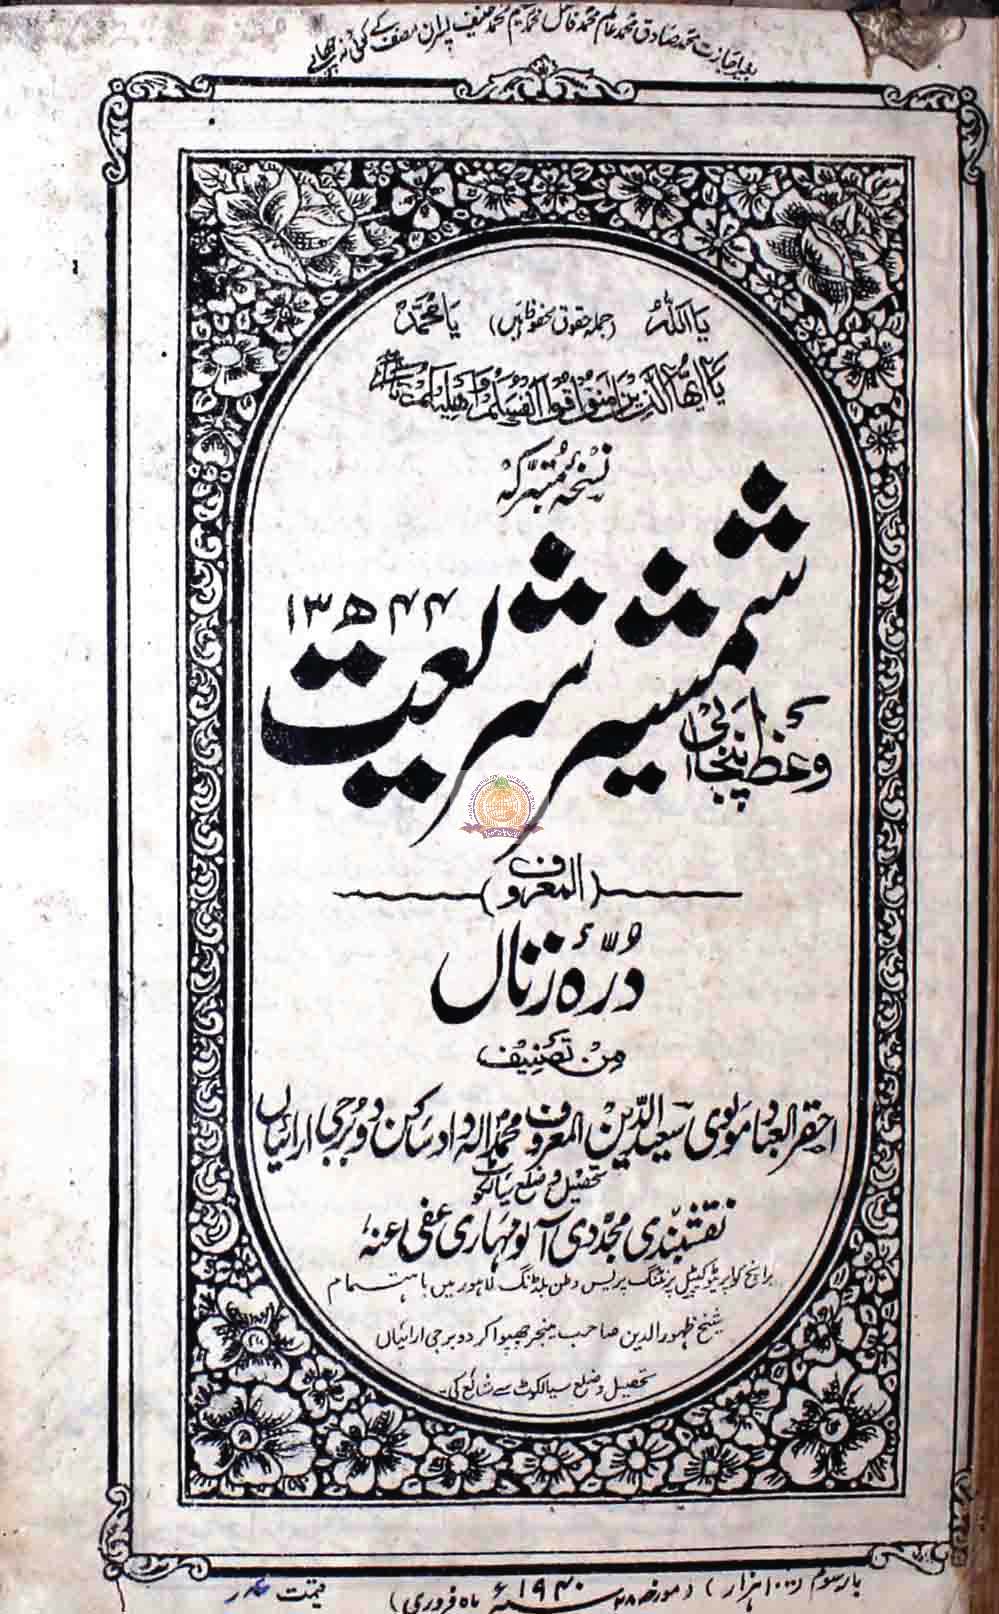 بغیر اجازت محمد صادق محمد عالم محمد فاضل محمد رحیم محمد حنیف پسران مصنف کے کوئی نہ چھاپے
یا اللہُ (جملہ حقوق محفوظ ہیں) یا محمدؐ
یَا اَیُّھَا الَّذِیْنَ اٰمَنُوْا قُوْا اَنْفُسَکُمْ وَاَھْلِیْکُمْ نَارًا
نسخہ متبرکہ
شمشیر شریعت
۱۳۵۴۴ھ
وعظ پنجابی
(المعروف)
دُرّہ زناں
من تصنیف
احقر العباد مولوی سعید الدین المعروف محمد الہ داد ساکن دوبرجی ارائیاں
تحصیل و ضلع سیالکوٹ
نقشبندی مجددی آلومہاری عفی عنہ
برانچ کواپریٹو کیپٹل پرنٹنگ پریس وطن بلڈنگ لاہور میں باہتمام
شیخ ظہور الدین صاحب مینجر چھپوا کر دوبرجی ارائیاں
تحصیل و ضلع سیالکوٹ سے شائع کی۔
بار سوم (۱۰۰۰ ہزار) (مورخہ ۲۸ ماہ فروری ۱۹۴۰ء) قیمت